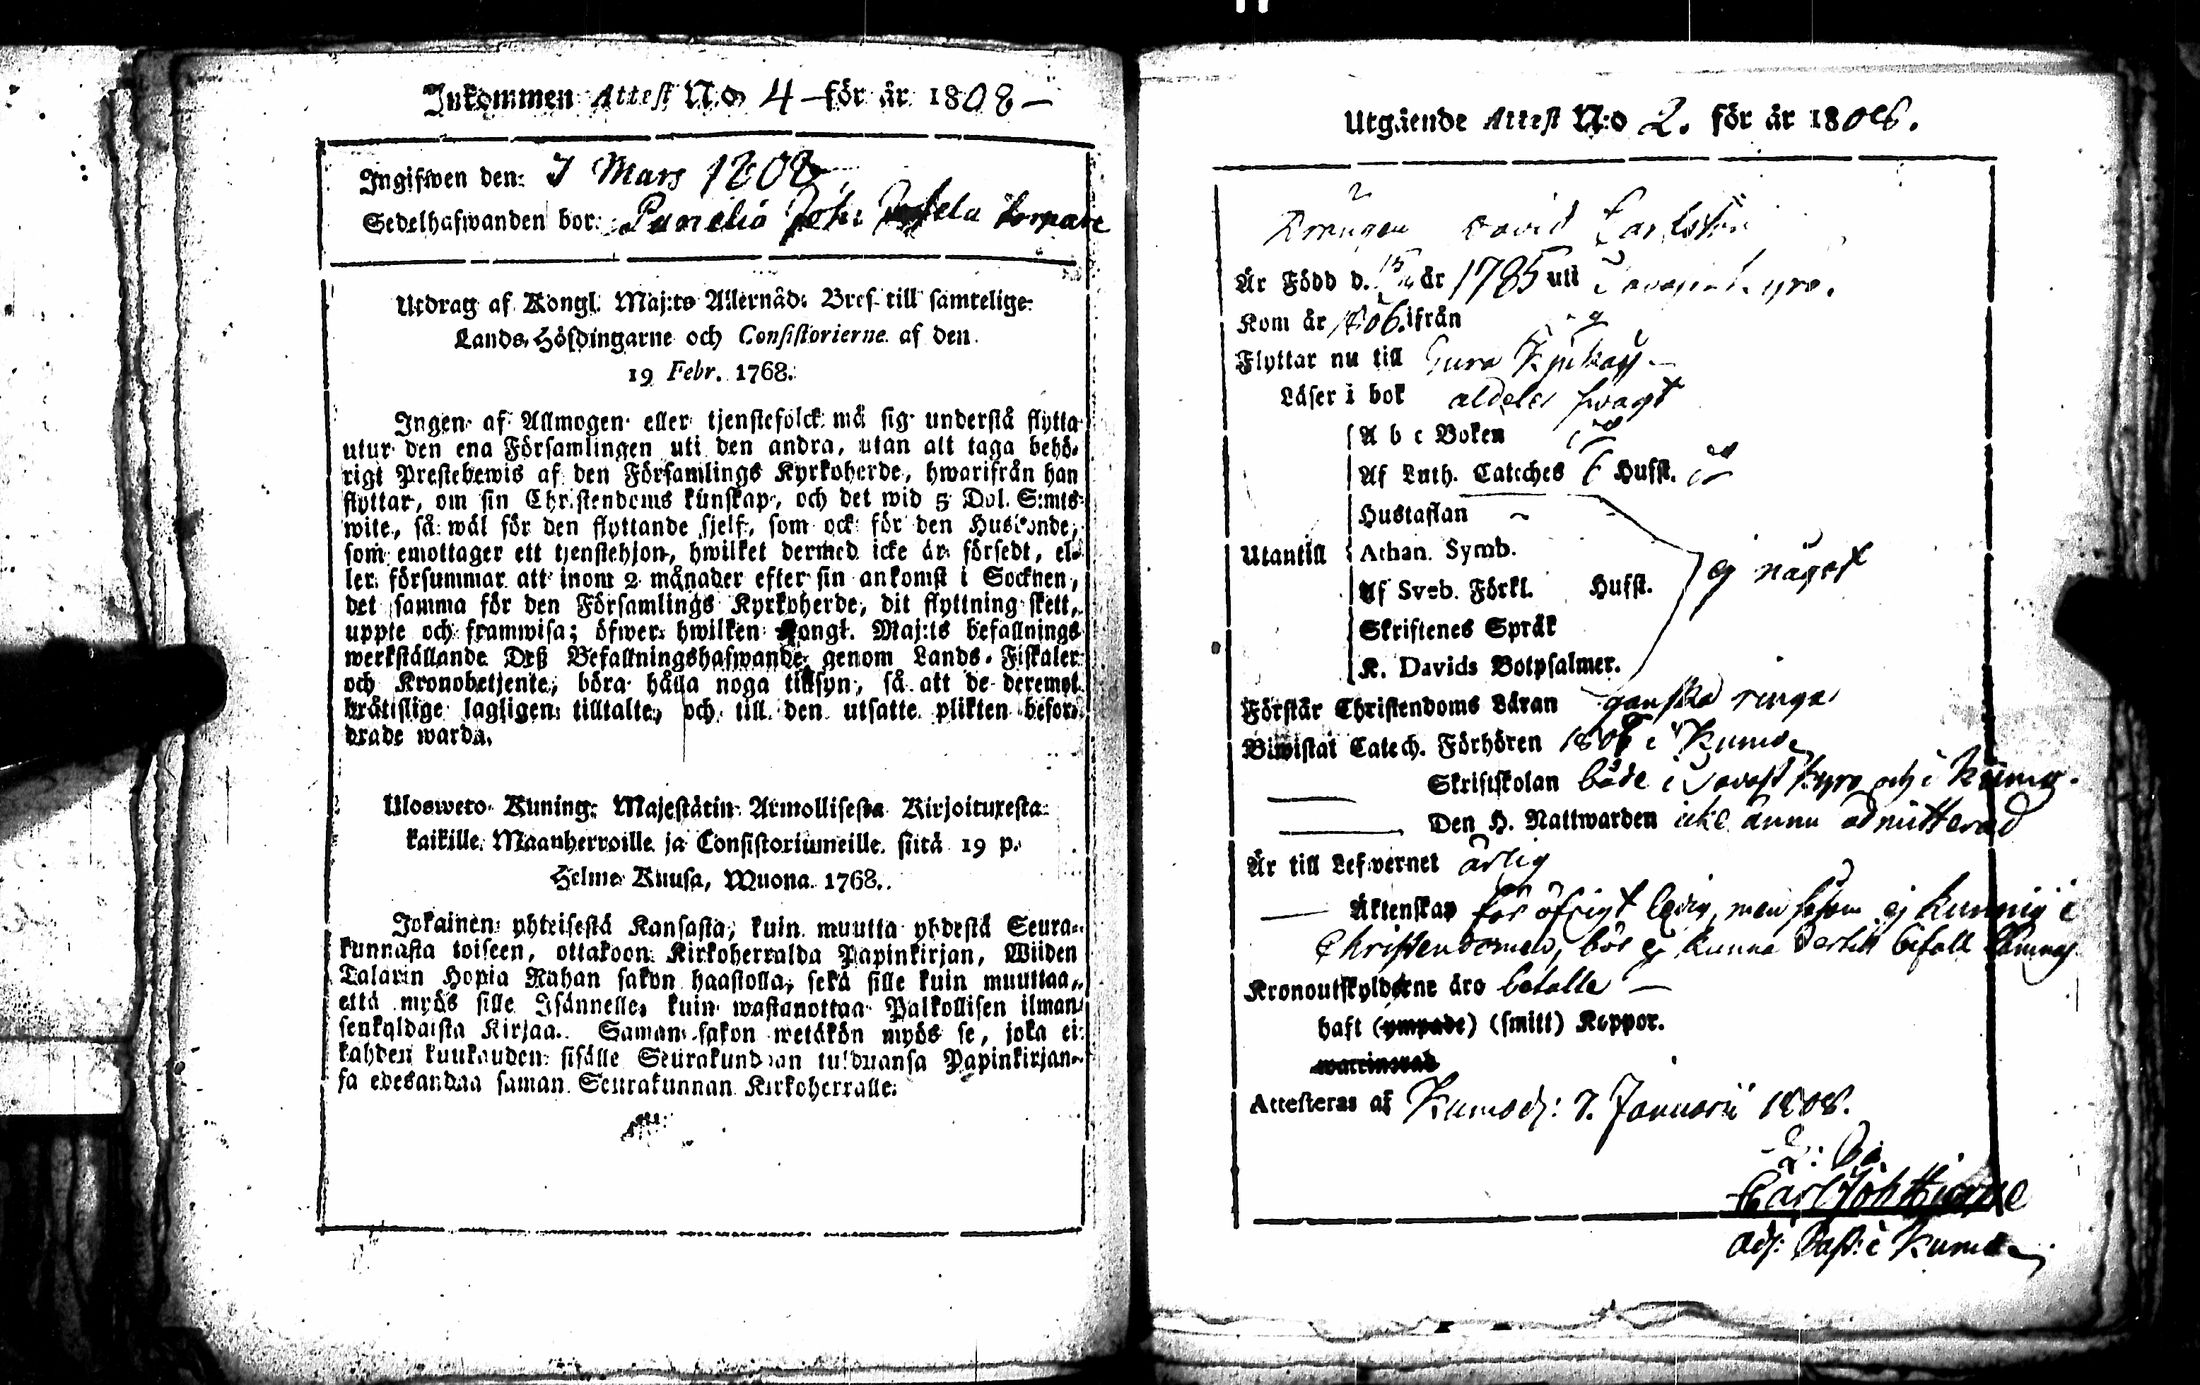 Inkommen Attest N:o 4 för år 1808
Ingifwen den: 7 Mars 1808
Sedelhafwanden bor: Punelia Torpare
Utdrag af Kongl. Maj:ts Allernåd. Bref till samtelige
Lands-Höfdingarne och Consistorierne af den
19 Febr. 1768.
Ingen af Allmogen eller tjenstefolck må sig understå flytta
utur den ena Församlingen uti den andra, utan att taga behö-
rigt Prestebewis af den Församlings Kyrkoherde, hwarifrån han
flyttar, om sin Christendoms kunskap, och det wid 5 Dol. S:mts
wite, så wäl för den flyttande sjelf, som ock för den Husbonde,
som emottager ett tjenstehjon, hwilket dermed icke är försedt, el-
ler försummar att inom 2 månader efter sin ankomst i Socknen,
det samma för den Församlings Kyrkoherde, dit flyttning skett,
uppte och framwisa; öfwer hwilken Kongl. Maj:ts befallnings
werkställande Deß Befallningshafwande genom Lands-Fiskaler
och Kronobetjente, böra hålla noga tillsyn, så att de deremot
brätislige lagligen tilltalte, och till den utsatte plikten befor-
drade warda.
Ulosweto Kuning. Majestätin Armollisesta Kirjoituxesta
kaikille Maanherroille ja Consistoriumeille siitä 19 p.
Helme Kuusa, Wuona 1768.
Jokainen yhteisestä Kansasta, kuin muutta yhdestä Seura-
kunnasta toiseen, ottakoon Kirkoherralda Papinkirjan, Wiiden
Talarin Hopia Rahan sakon haastolla, sekä sille kuin muuttaa,
että myös sille Isännelle, kuin wastanottaa Palkollisen ilman
senkyldaista Kirjaa. Saman sakon wetäkön myös se, joka ei
kahden kuukauden sisälle Seurakundaan tulduansa Papinkirjan-
sa edesandaa saman Seurakunnan Kirkoherralle.
Utgående Attest N:o 2. för år 1808.
Drängen David Carlsson
Är Född d. 15 är 1785 uti
Kom år 1806 ifrån
Flyttar nu till Eura
Läser i bok aldeles swagt
A b c Boken
Af Luth. Cateches Husst.
Hustaflan
Utantill Athan. Symb.
Af Sveb. Förkl. Husst. ej något
Skriftenes Språk
K. Davids Botpsalmer.
Förstår Christendoms Läran ganska ringa
Biwistat Catech. Förhören i Kumo
Skriftskolan både i Tavastkyro och i Kumo.
Den H. Nattwarden icke ännu admitterad
Är till Lefwernet ärlig
Äktenskap för öfrigt ledig, men såsom ej kunnig i
Christendomen, bör ej kunna dertill befall lämnas
Kronoutskylderne äro betalte
haft (ympade) (smitt) Koppor.
Attesteras af Kumo d: 7. Januarii 1808.
Carl Joh
Adj: Past: i Kumo